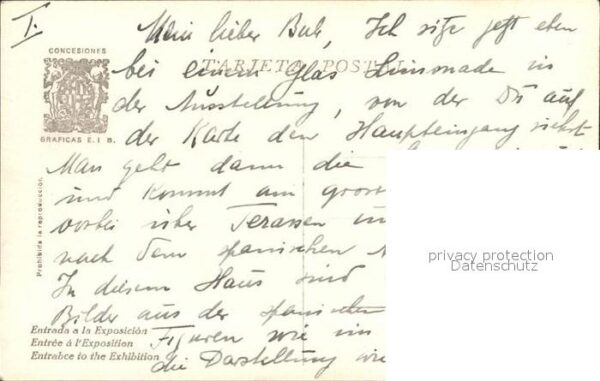 I.
Mein lieber Bub, Ich sitze jetzt eben
CONCESIONES
TARJETA POSTAL
bei einem Glas Limonade in
der Ausstellung, von der Du auf
GRAFICAS E. I B.
der Karte den Haupteingang siehst
Man geht dann die
und kommt am
vorbei über Terassen
nach dem spanischen
In diesem Haus sind
Bilder aus der spanischen
Figuren wie im
die Darstellung
Prohibida la reproducción.
privacy protection
Datenschutz
Entrada a la Exposición
Entrée á l'Exposition
Entrance to the Exhibition